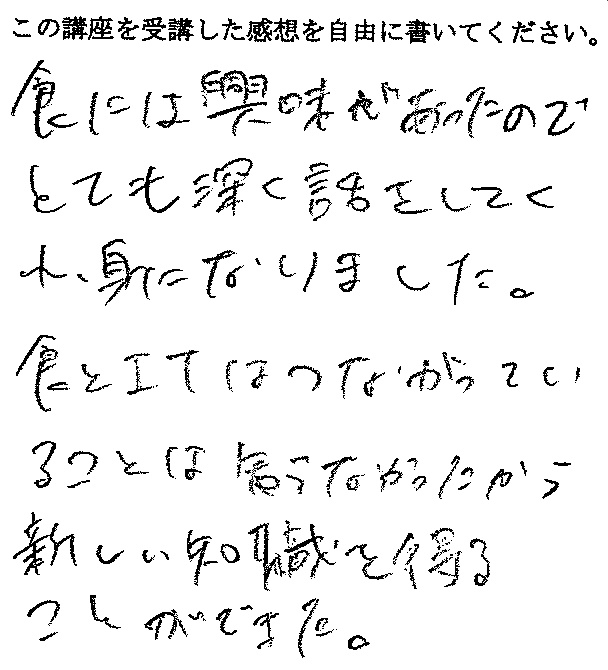 この講座を受講した感想を自由に書いてください。
食には興味があったので
とても深く話をしてく
れ、身になりました。
食とITはつながってい
ることは言うなかったから
新しい知職を得る
ことができた。